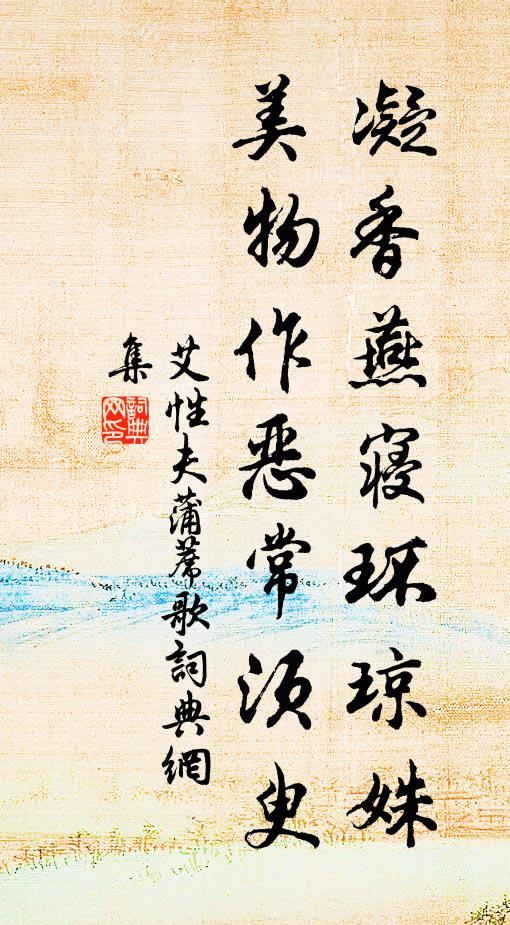 凝香燕寝环琼姝
美物作恶常须臾
艾性夫蒲蓆歌詞典網
集
詞典
网印